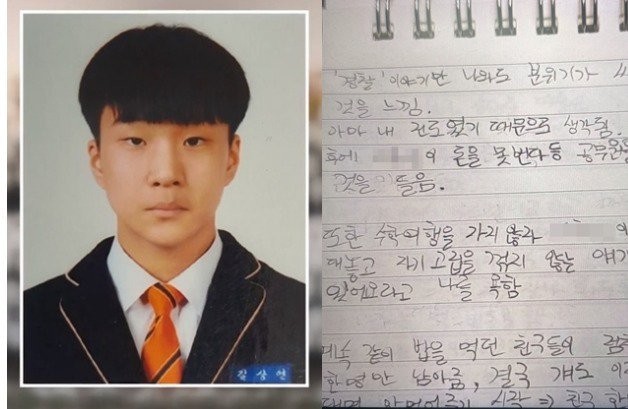 김상연
'경찰' 이야기만 나와도 분위기가
것을 느낌.
아마 내 진로였기 때문으로 생각됨.
후에 의 돈을 못 번다 등 공무원을
것을 들음.
또한 수학여행을 가지 않자
대놓고 자기 고립을 겪지 않는 얘기
있어요라고 나를 욕함
계속 같이 밥을 먹던 친구들이
한명만 남아줌, 결국 걔도
안먹어주기 시작 => 친구